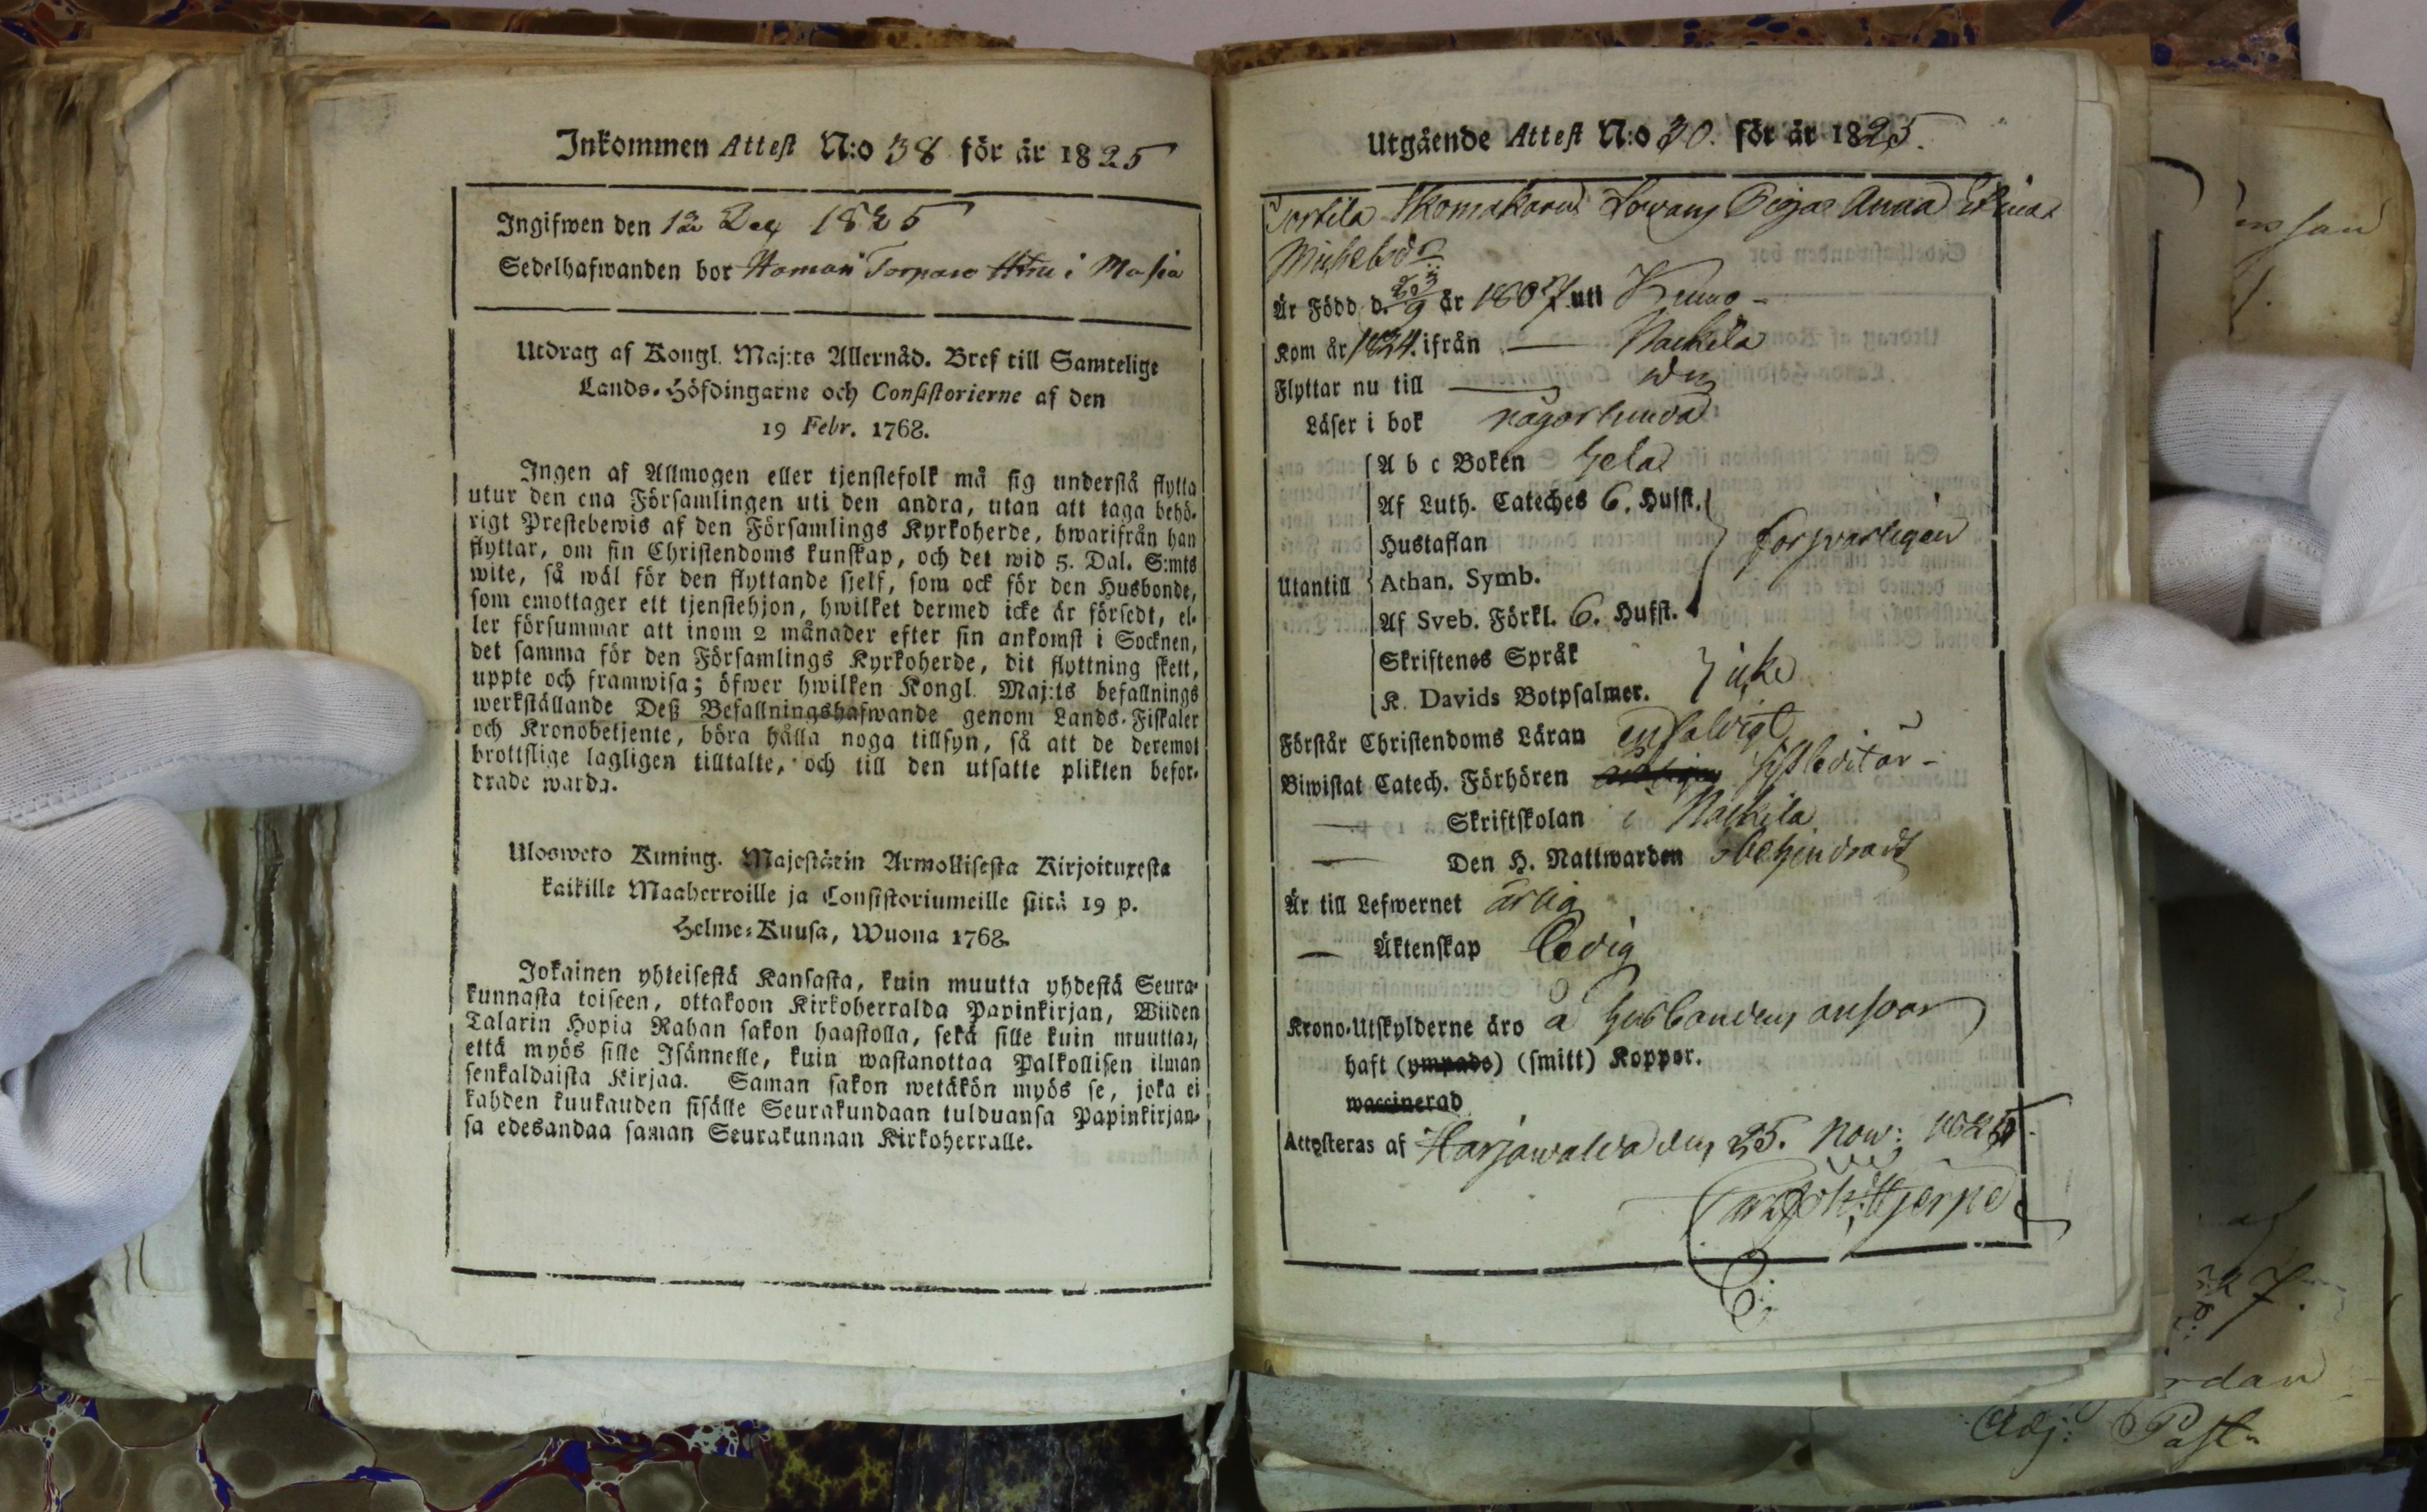 Inkommen Attest N:o 38 för år 1825
Ingifwen den 12 Dec 1825
Sedelhafwanden bor Torpare i Masia
Utdrag af Kongl. Maj:ts Allernåd. Bref till Samtelige
Lands-Höfdingarne och Consistorierne af den
19 Febr. 1768.
Ingen af Allmogen eller tjenstefolk må sig understå flytta
utur den ena Församlingen uti den andra, utan att taga behö-
rigt Prestebewis af den Församlings Kyrkoherde, hwarifrån han
flyttar, om sin Christendoms kunskap, och det wid 5. Dal. S:mts
wite, så wäl för den flyttande sjelf, som ock för den Husbonde,
som emottager ett tjenstehjon, hwilket dermed icke är försedt, el-
ler försummar att inom 2 månader efter sin ankomst i Socknen,
det samma för den Församlings Kyrkoherde, dit flyttning skett,
uppte och framwisa; öfwer hwilken Kongl. Maj:ts befallnings
werkställande Deß Befallningshafwande genom Lands-Fiskaler
och Kronobetjente, böra hålla noga tillsyn, så att de deremot
brottslige lagligen tilltalte, och till den utsatte plikten befor-
drade warda.
Uloswето Kuning. Majestätin Armollisesta Kirjoituxesta
kaikille Maaherroille ja Consistoriumeille siitä 19 p.
Helme-Kuusa, Wuona 1768.
Jokainen yhteisestä Kansasta, kuin muutta yhdestä Seura-
kunnasta toiseen, ottakoon Kirkoherralda Papinkirjan, Wiiden
Talarin Hopia Rahan sakon haastolla, sekä sille kuin muuttaa,
että myös sille Isännelle, kuin wastanottaa Palkollisen ilman
senkaldaista Kirjaa. Saman sakon wetäkön myös se, joka ei
kahden kuukauden sisälle Seurakundaan tulduansa Papinkirjan-
sa edesandaa saman Seurakunnan Kirkoherralle.
Utgående Attest N:o 30. för år 1825.
Torttila Skomakaren Pigan Anna
Michelsdr
Är Född d. 23/9 år 1807 uti Kumo
Kom år 1824 ifrån — Nackila
Flyttar nu till —
Läser i bok någorlunda
A b c Boken hela
Af Luth. Cateches 6. Hufst.
Hustaflan försvarligen
Utantill Athan. Symb.
Af Sveb. Förkl. 6. Hufst.
Skriftenes Språk
K. Davids Botpsalmer. icke
Förstår Christendoms Läran enfaldigt
Biwistat Catech. Förhören sistledit år
— Skriftskolan i Nackila
— Den H. Nattwarden obehindrad
Är till Lefwernet ärlig
— Äktenskap ledig
Krono-Utskylderne äro å husbondens ansvar
haft (ympade) (smitt) Koppor.
waccinerad
Attesteras af Harjawalda den 25. Nov: 1825
Adj: Past.